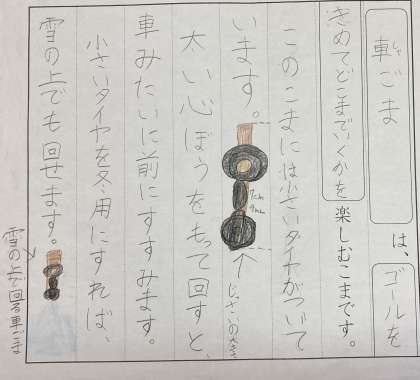 車ごま
しゃ
は、
ゴールを
きめてどこまでいくかを
楽しむこまです。
このこまには小さいタイヤがついて
います。
太い心ぼうをもって回すと、
車みたいに前にすすみます。
小さいタイヤを冬用にすれば、
雪の上でも回せます。
じっさいの大きさ
雪の上で回る車ごま